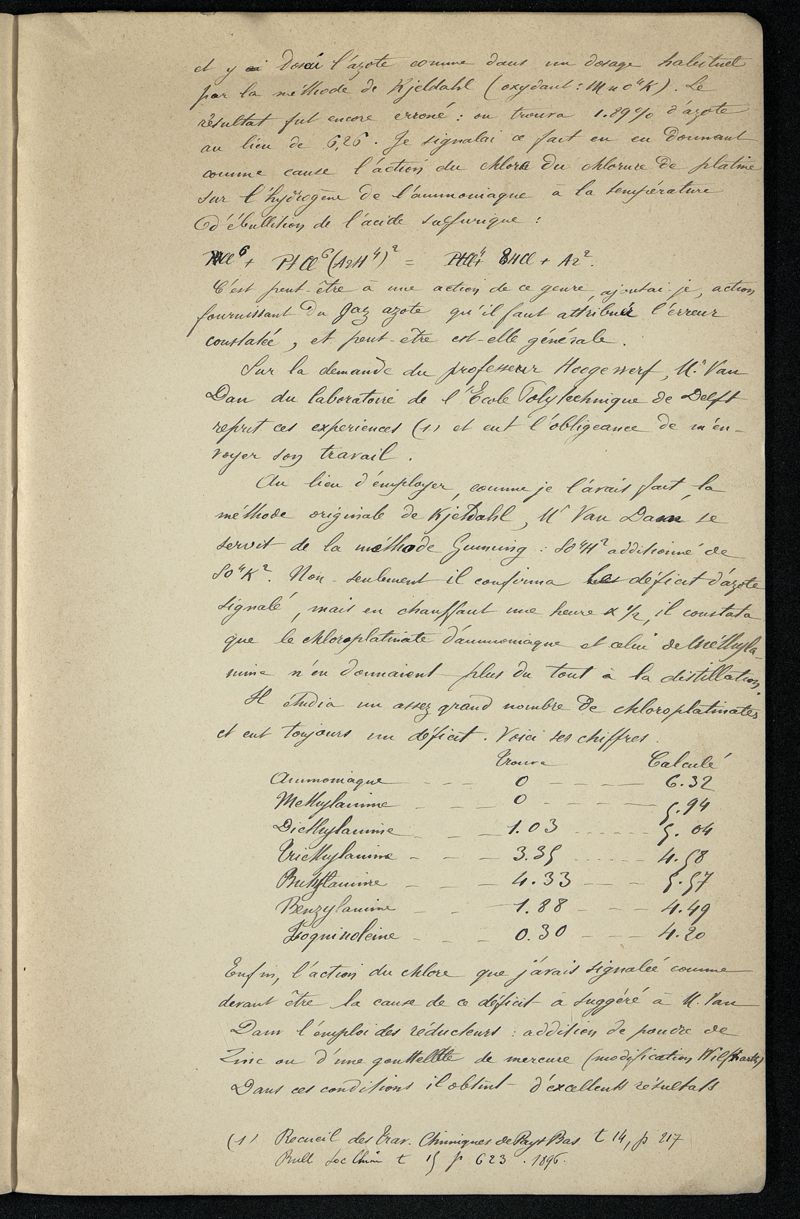 et y ai dosé l'azote comme dans un dosage habituel
par la méthode de Kjeldahl (oxydant : MnO⁴K). Le
résultat fut encore erroné : on trouva 1.89% d'azote
au lieu de 6,26. Je signalai ce fait en en donnant
comme cause l'action du chlore du chlorure de platine
sur l'hydrogène de l'ammoniaque à la température
d'ébullition de l'acide sulfurique :
PtCl⁶ + PtCl⁶(AzH⁴)² = PtCl⁴ + 8HCl + Az².
C'est peut être à une action de ce genre, ajoutai-je, action
fournissant du gaz azote qu'il faut attribuer l'erreur
constatée, et peut-être est-elle générale.
Sur la demande du professeur Hoogewerf, Mʳ Van
Dam du laboratoire de l'École Polytechnique de Delft
reprit ces experiences (1) et eut l'obligeance de m'en-
voyer son travail.
Au lieu d'employer, comme je l'avais fait, la
méthode originale de Kjeldahl, Mʳ Van Dam se
servit de la méthode Gunning : SO⁴H² additionné de
SO⁴K². Non-seulement il confirma le déficit d'azote
signalé, mais en chauffant une heure x 1/2, il constata
que le chloroplatinate d'ammoniaque et celui de Méthyla-
mine n'en donnaient plus du tout à la distillation.
Il étudia un assez grand nombre de chloroplatinates
et eut toujours un déficit. Voici ses chiffres.
trouvé Calculé
Ammoniaque - - - 0 - - - - 6.32
Methylamine - - - 0 - - - - 5.94
Diethylamine - - - 1.03 - - - - 5.04
Triethylamine - - - 3.35 - - - - 4.58
Butylamine - - - 4.33 - - - - 5.57
Benzylamine - - - 1.88 - - - - 4.49
Isoquinoléine - - - 0.30 - - - - 4.20
Enfin, l'action du chlore que j'avais signalée comme
devant être la cause de ce déficit a suggéré à M. Van
Dam l'emploi des réducteurs : addition de poudre de
Zinc ou d'une gouttelette de mercure (modification Wilfharth)
Dans ces conditions il obtint d'excellents résultats
(1) Recueil des Trav. Chimiques de Pays Bas t 14, p 217
Bull Soc Chim t 15 p 623. 1896.